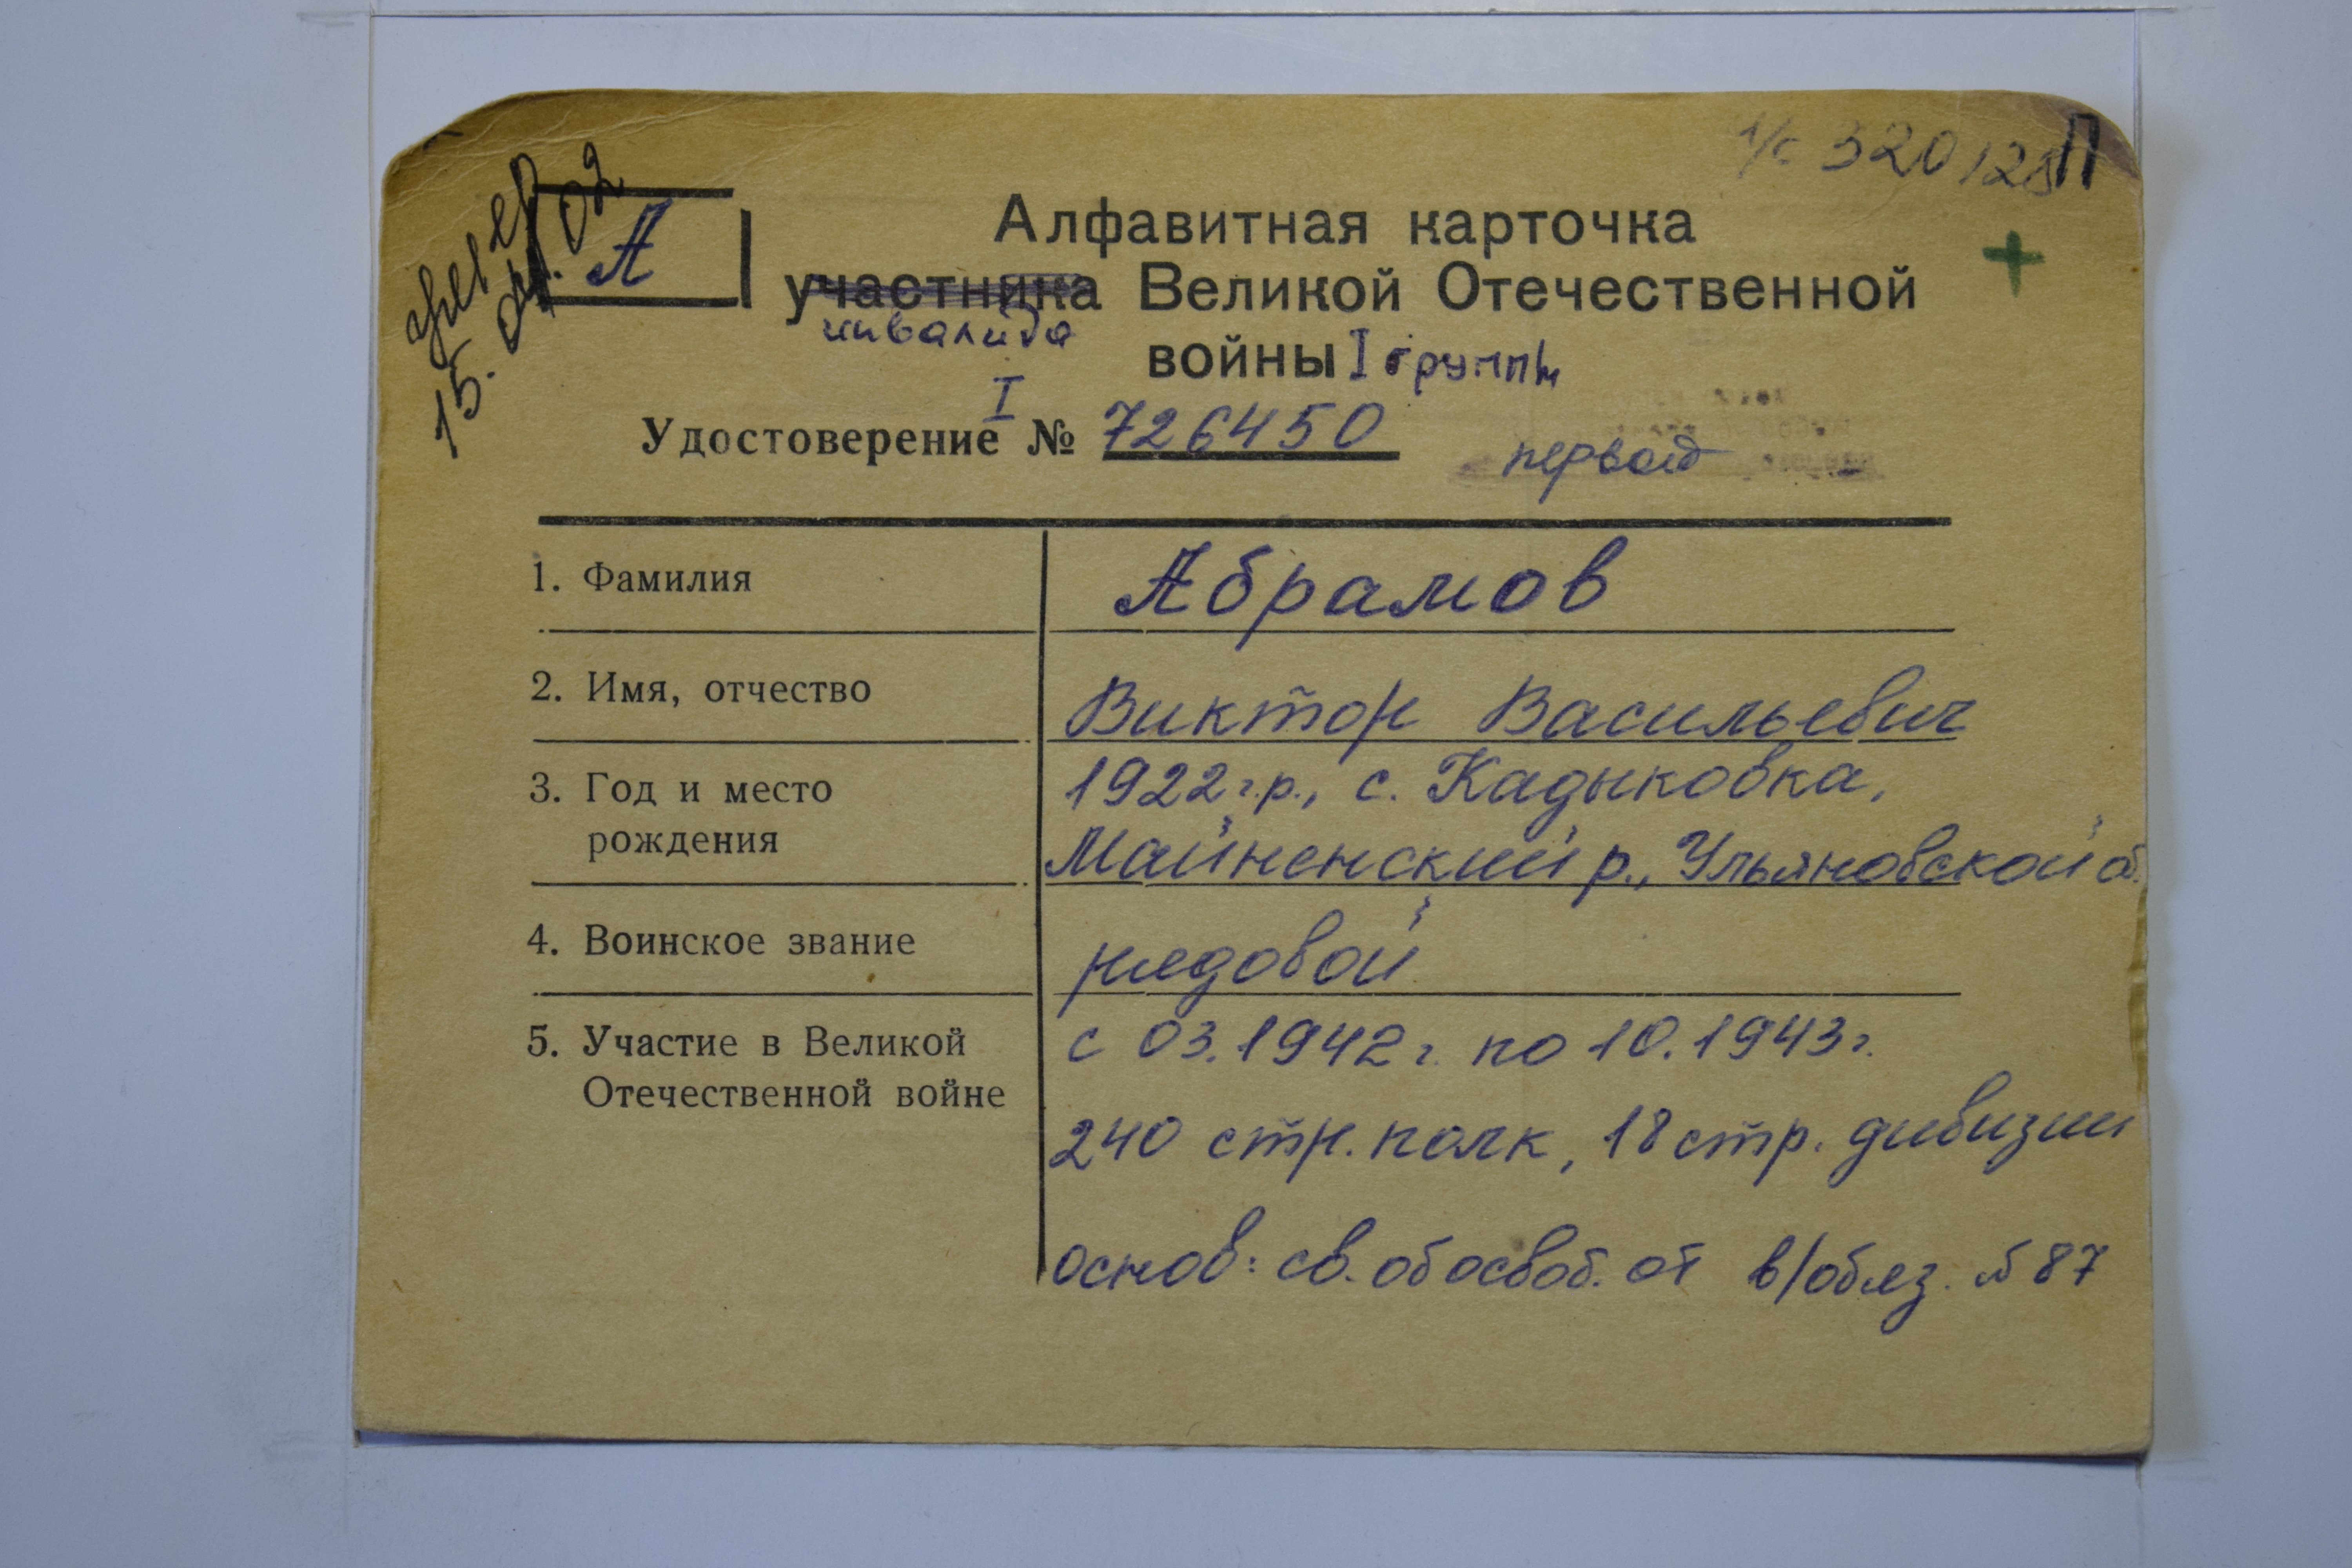 л/с 320128 П
умер
15.04.02
А
Алфавитная карточка
участника Великой Отечественной
инвалида
войны I группы
I
Удостоверение № 726450
первой
1. Фамилия Абрамов
2. Имя, отчество Виктор Васильевич
3. Год и место 1922 г.р., с. Кадыковка,
рождения Майненский р., Ульяновской об.
4. Воинское звание рядовой
5. Участие в Великой с 03.1942 г. по 10.1943 г.
Отечественной войне
240 стр. полк, 18 стр. дивизии
основ: св. об освоб. от в/обяз. № 87